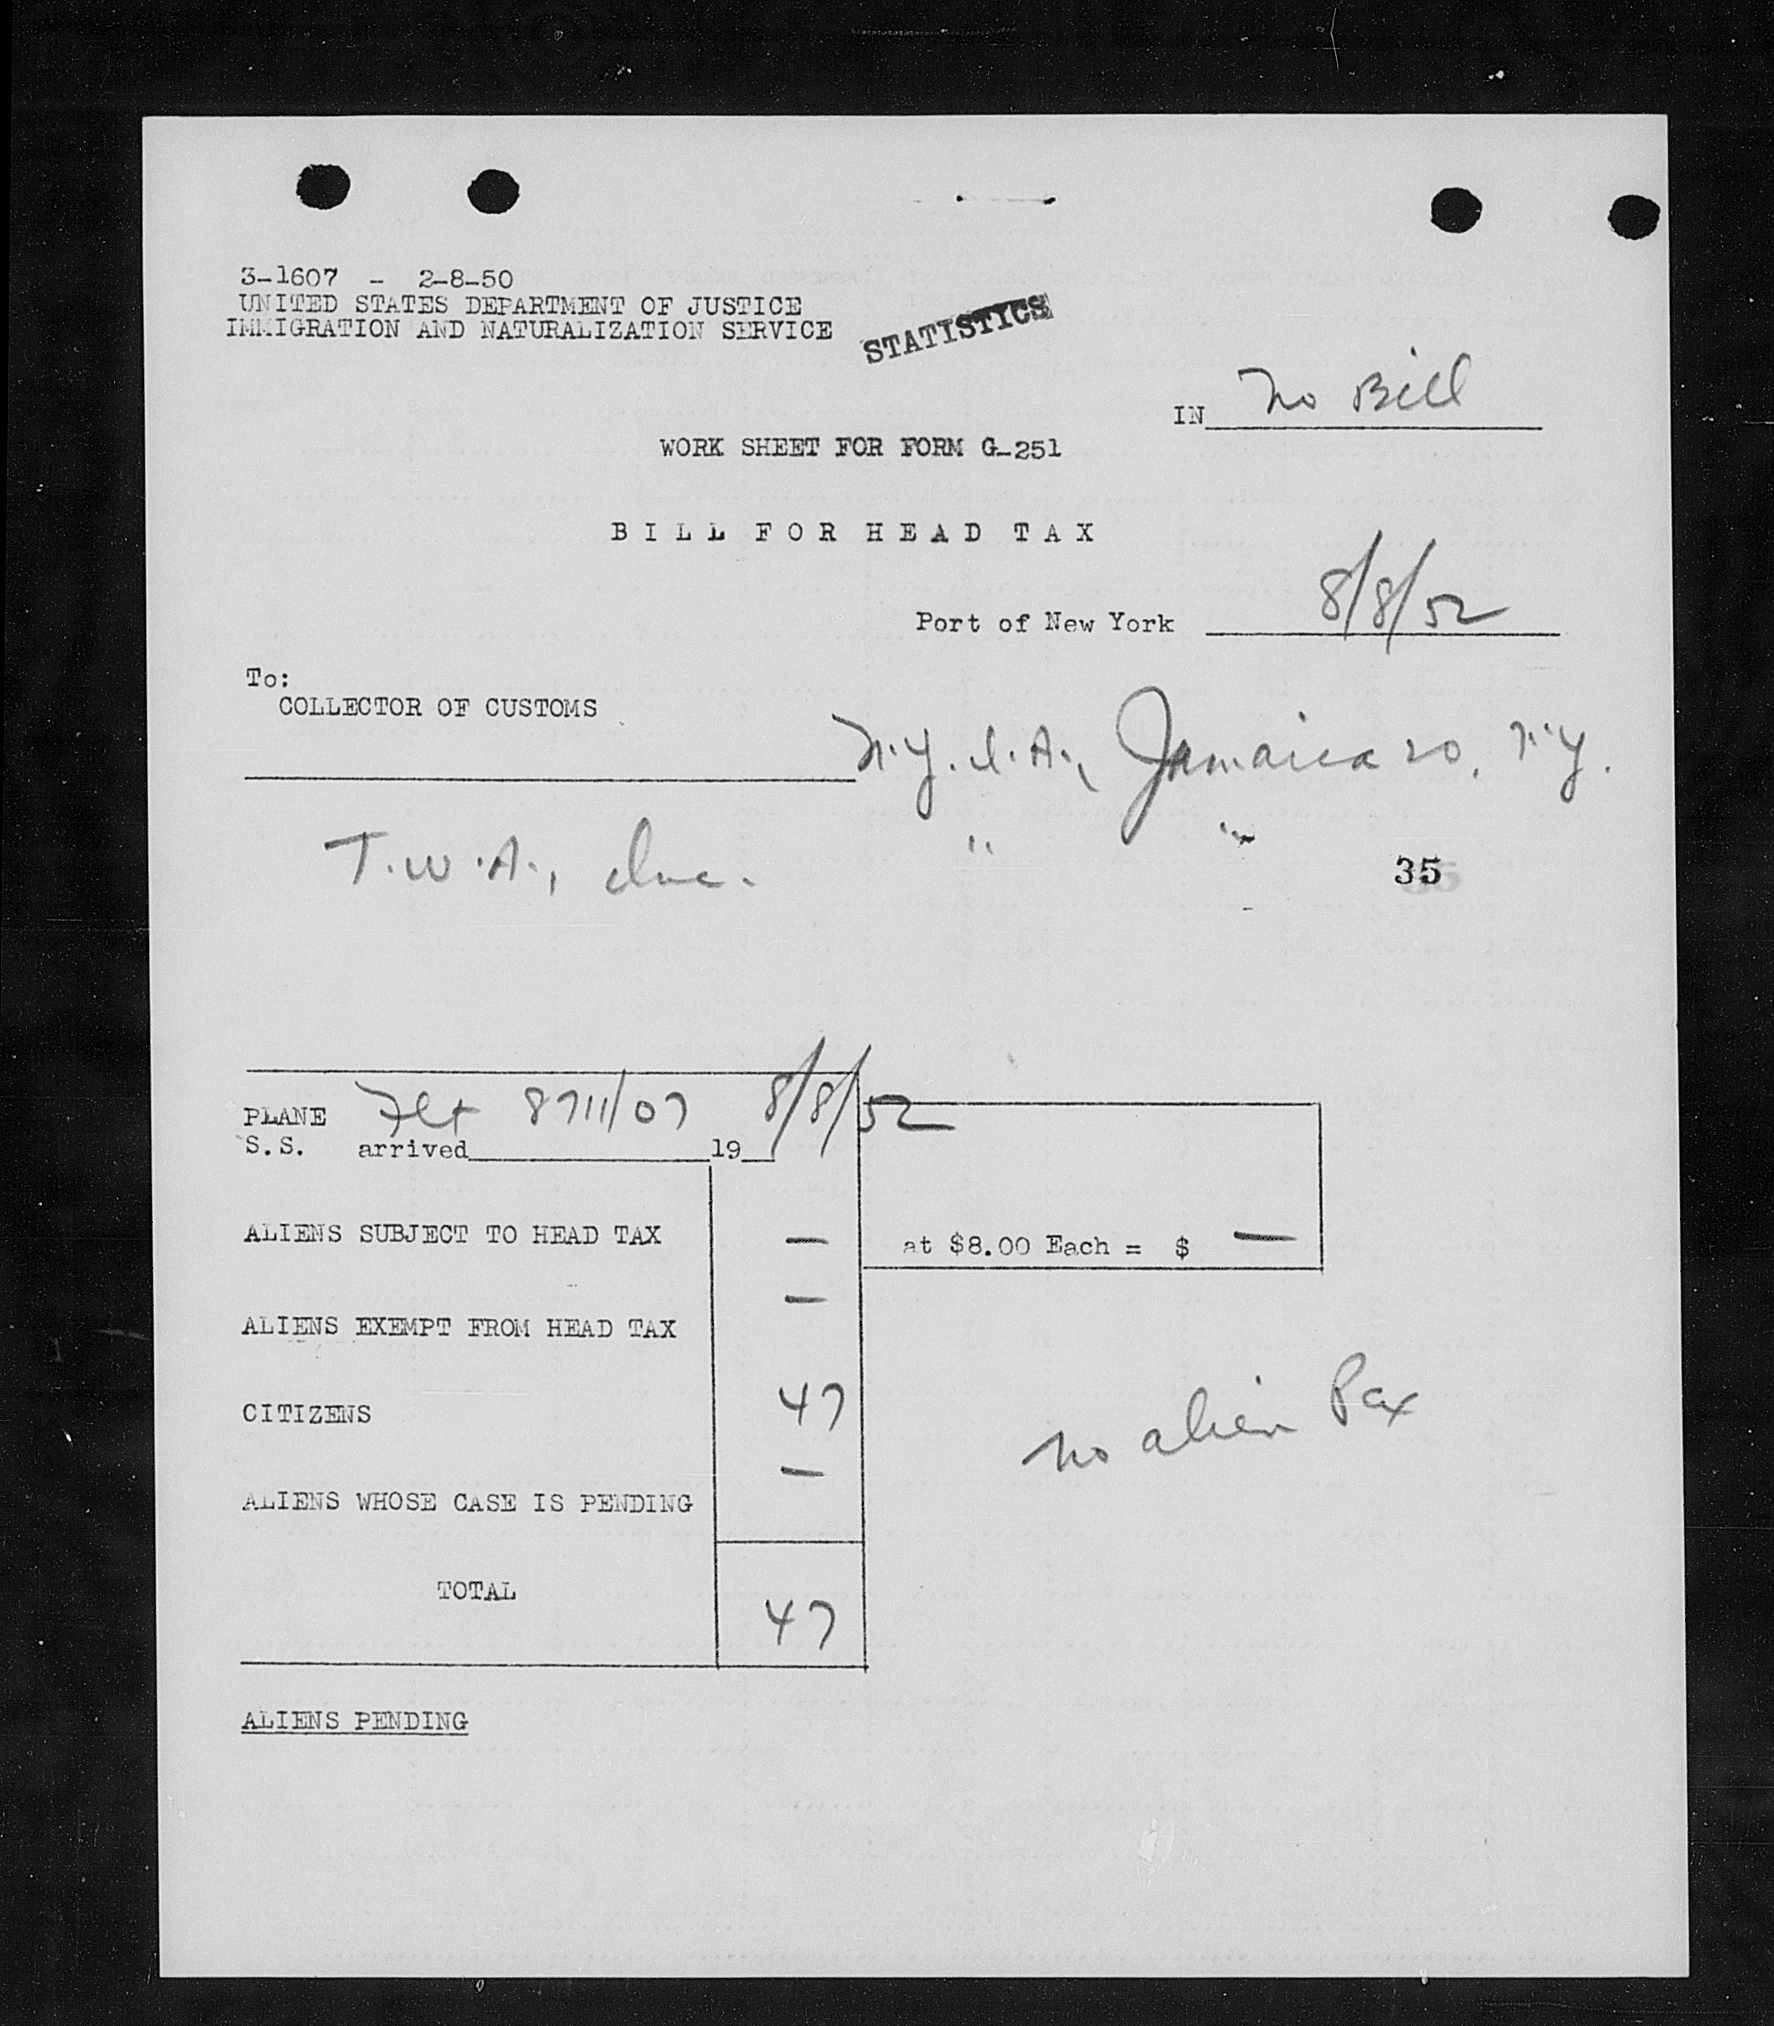 3-1607 - 2-8-50
UNITED STATES DEPARTMENT OF JUSTICE
IMMIGRATION AND NATURALIZATION SERVICE
STATISTICS
IN No Bill
WORK SHEET FOR FORM G-251
BILL FOR HEAD TAX
Port of New York 8/8/52
To:
COLLECTOR OF CUSTOMS
N.Y.I.A., Jamaica 20, N.Y.
T.W.A., Inc. " "
35
PLANE Flt 8711/07 8/8/52
S.S. arrived 19
ALIENS SUBJECT TO HEAD TAX —
at $8.00 Each = $ —
ALIENS EXEMPT FROM HEAD TAX —
CITIZENS 47
no alien Pax
ALIENS WHOSE CASE IS PENDING —
TOTAL 47
ALIENS PENDING